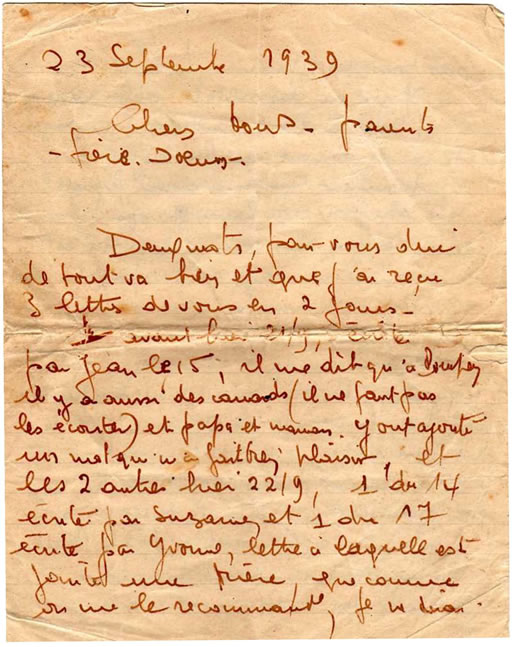 23 Septembre 1939
Chers tous - parents
- frère. Soeurs -.
Deux mots, pour vous dire
que tout va bien et que j'ai reçu
3 lettres de vous en 2 jours -
avant hier 21/9, écrite
par Jean le 15, il me dit qu'à
il y a aussi des canards (il ne faut pas
les écouter) et papa et maman y ont ajouté
un mot qui m'a fait bien plaisir, et
les 2 autres hier 22/9, 1 du 14
écrite par Suzanne, et 1 du 17
écrite par Yvonne, lettre à laquelle est
jointe une prière, que comme
on me le recommande, je